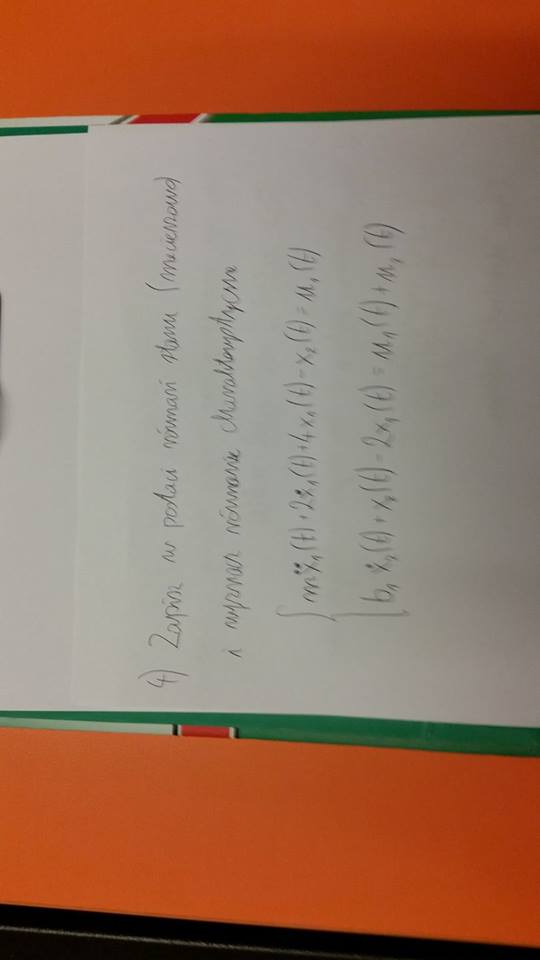 4) Zapisz w postaci równań stanu (macierzowo)
i wyznacz równanie charakterystyczne
mẍ₁(t) + 2ẋ₁(t) + 4x₁(t) - x₂(t) = u₁(t)
b₁ẋ₂(t) + x₂(t) - 2x₁(t) = u₁(t) + u₂(t)